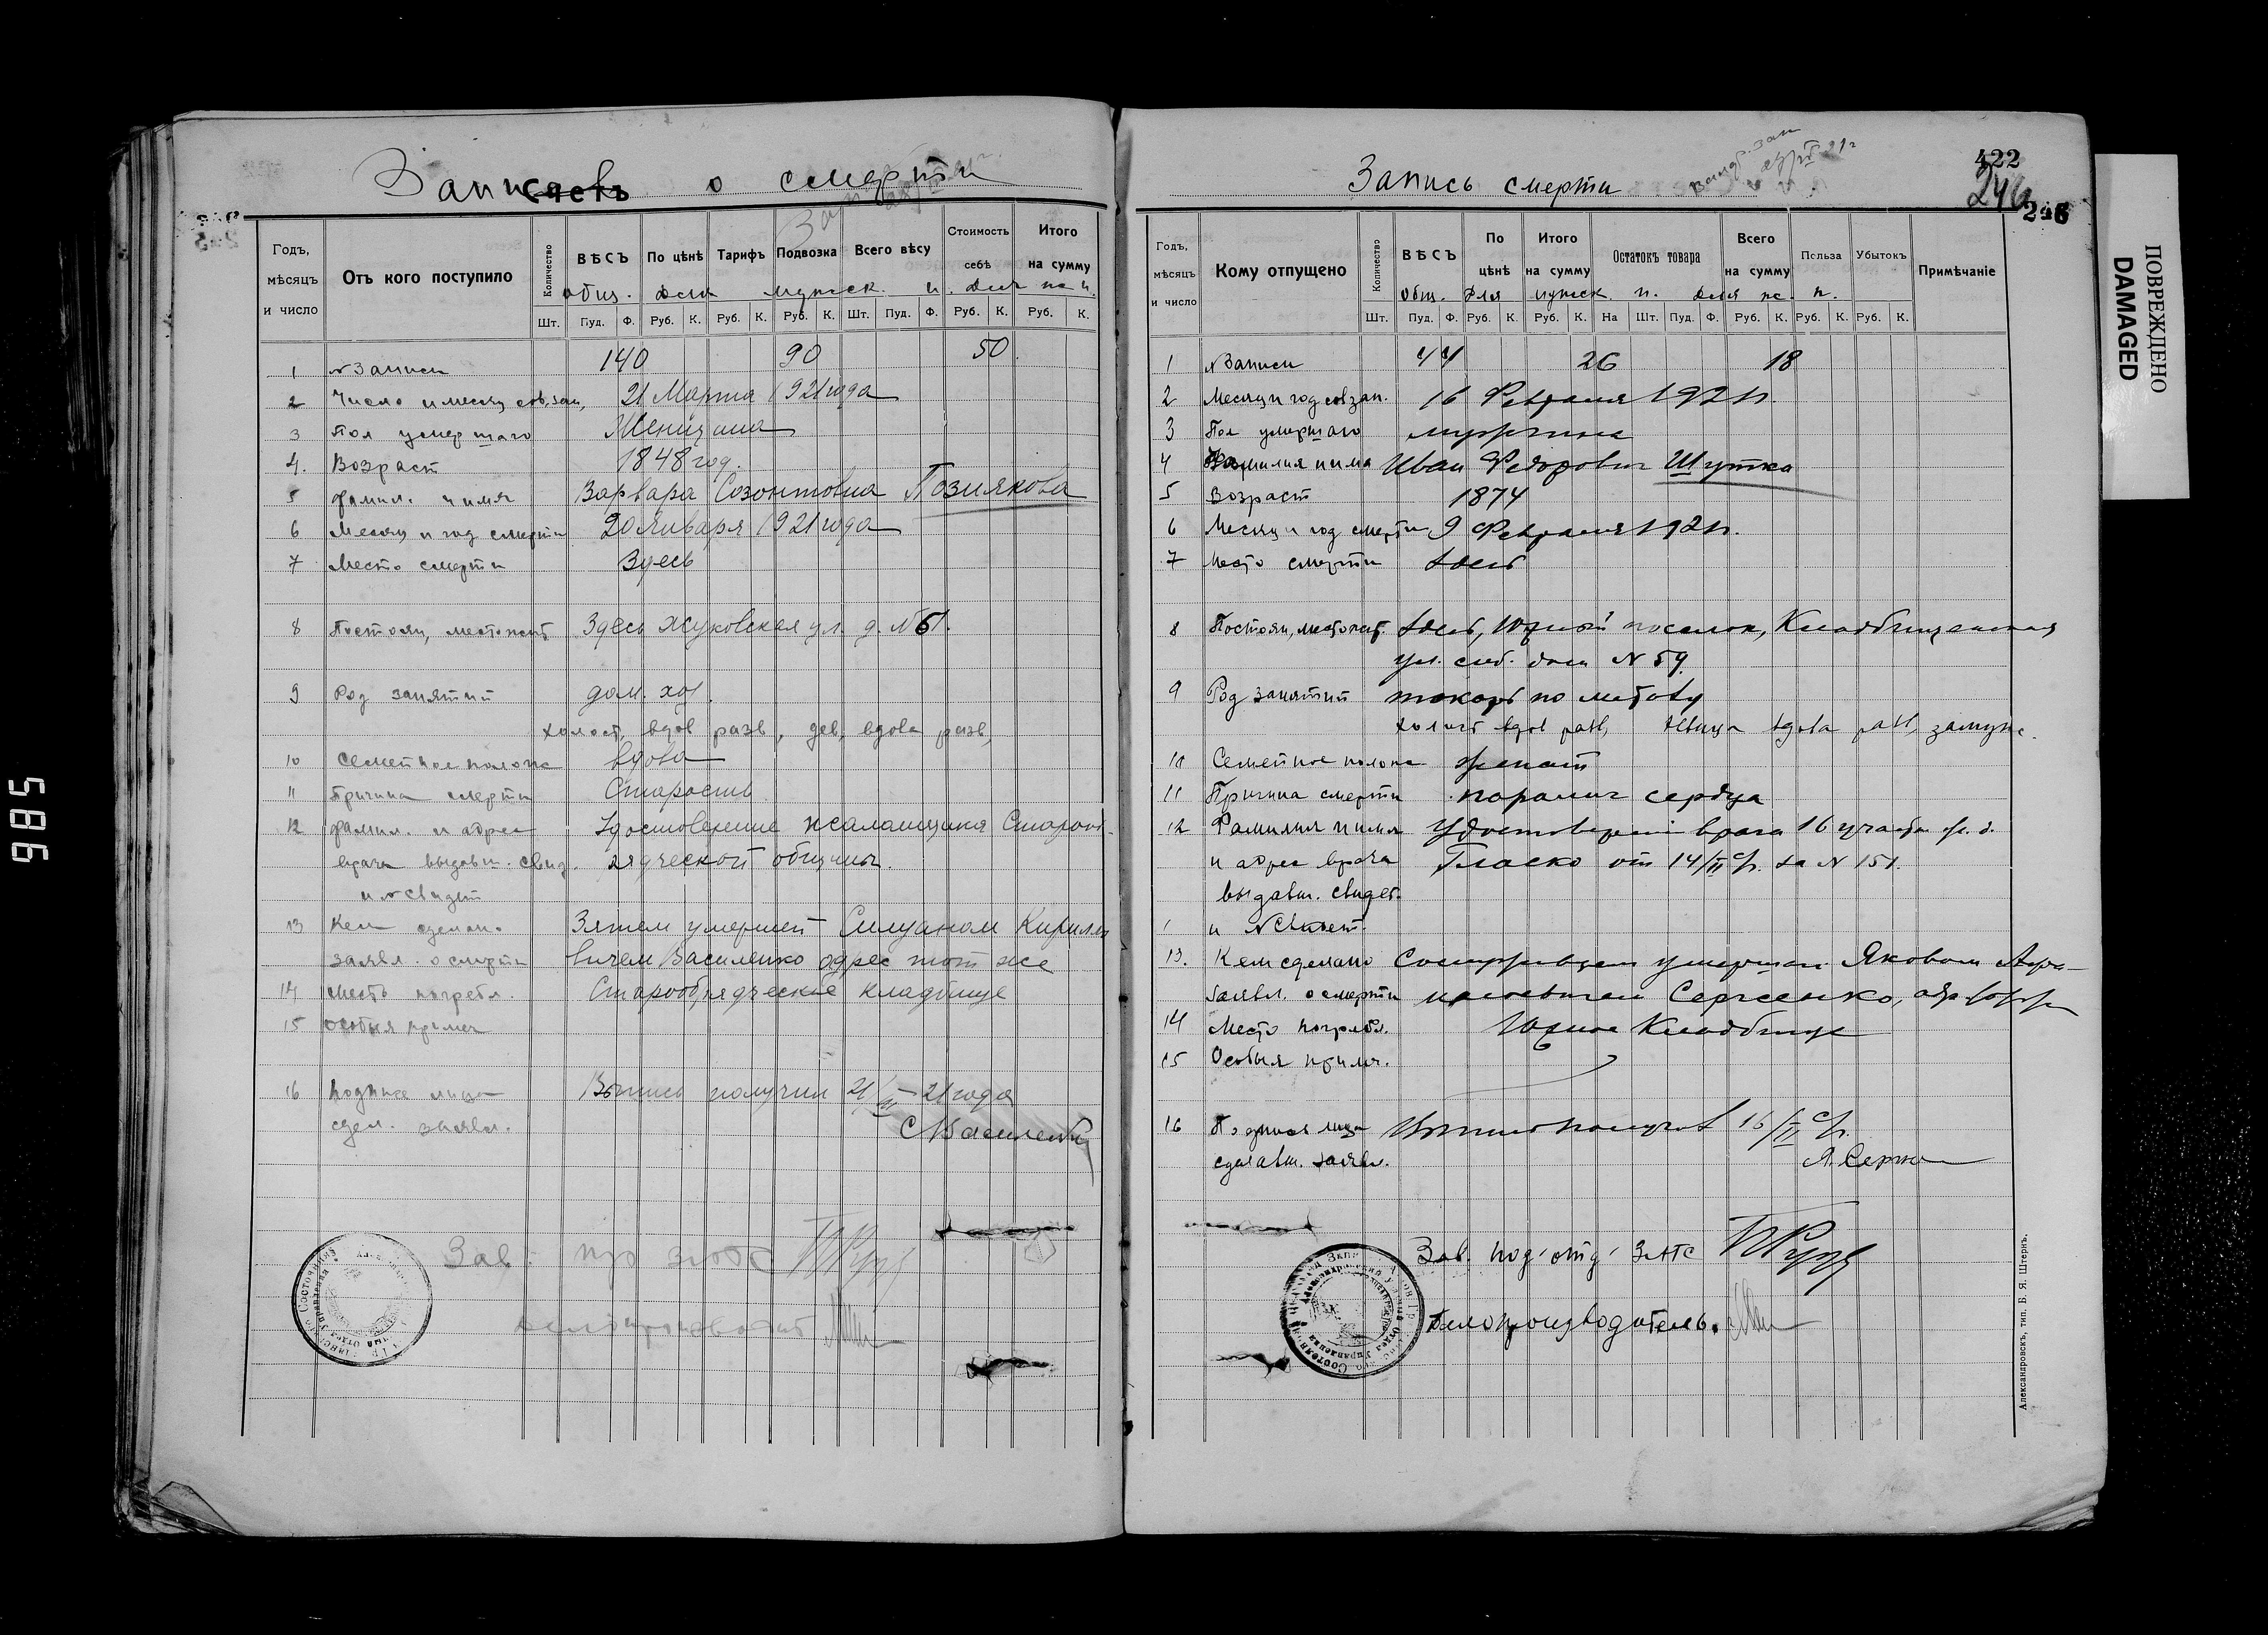 Запись о смерти
Часть
Годъ, мѣсяцъ и число
Отъ кого поступило
Количество
ВѢСЪ
По цѣнѣ
Тарифъ
Подвозка
Всего вѣсу
Стоимость себѣ
Итого на сумму
общ. для мужск. п. для ж. п.
Шт. Пуд. Ф. Руб. К. Руб. К. Руб. К. Шт. Пуд. Ф. Руб. К. Руб. К.
1 № записи 140 90 50
2 Число и месяц сов. зап. 21 Марта 1921 года
3 Пол умершаго Женщина
4. Возраст 1848 год.
5 Фамил. и имя Варвара Созонтовна Позиякова
6 Месяц и год смерти 20 Января 1921 года
7 Место смерти Здесь
8 Постоян. местожит. Здесь Жуковская ул. д. №
9 Род занятий дом. хоз.
холост, вдов разв, дев, вдова разв,
10 Семейное полож вдова
11 Причина смерти Старость
12 Фамил. и адрес Удостоверение псаломщика Старооб-
врача выдавш. свид. рядческой общины.
и № свидет
13 Кем сделано Зятем умершей Кирилло
заявл. о смерти вичем Василенко адрес тот же
14 Место погребл. Старообрядческое кладбище
15 Особыя примеч
16 Подпись лица Выпись получил 21/III–21 года
сдел. заявл. С Василенко
Зав. п/о ЗАГС
делопроизводит
985
Запись смерти
422
246
246
Годъ, мѣсяцъ и число
Кому отпущено
Количество
ВѢСЪ
По цѣнѣ
Итого на сумму
Остатокъ товара
Всего на сумму
Польза
Убытокъ
Примѣчаніе
общ. для мужск. п. для ж. п.
Шт. Пуд. Ф. Руб. К. Руб. К. На Шт. Пуд. Ф. Руб. К. Руб. К. Руб. К.
1 № записи 44 26 18
2 Месяц и год сов зап. 16 Февраля 1921 г.
3 Пол умершаго мужчина
4 Фамилия и имя Иван Федорович Шутка
5 Возраст 1874
6 Месяц и год смерти 9 Февраля 1921 г.
7 Место смерти здесь
8 Постоян. местожит. здесь, Южный поселок, Кладбищенская
ул. соб. дом № 59
9 Род занятий токарь по металу
холост вдов разв, девица вдова разв, замужн.
10 Семейное полож женат
11 Причина смерти паралич сердца
12 Фамилия и имя Удостоверен врача 16 участка
и адрес врача от 14/II с/г. за № 151.
выдавш. свидет.
и № Свидет.
13. Кем сделано умершаго Яковом
заявл. о смерти Сергеенко,
14 Место погребл. Южное Кладбище
15 Особыя примч.
16 Подпись лица Выпись получил 16/II с/г.
сделавш. заявл.
Зав. под'отд' ЗАГС
Делопроизводитель.
Александровскъ, тип. Б. Я. Штернъ.
ПОВРЕЖДЕНО
DAMAGED